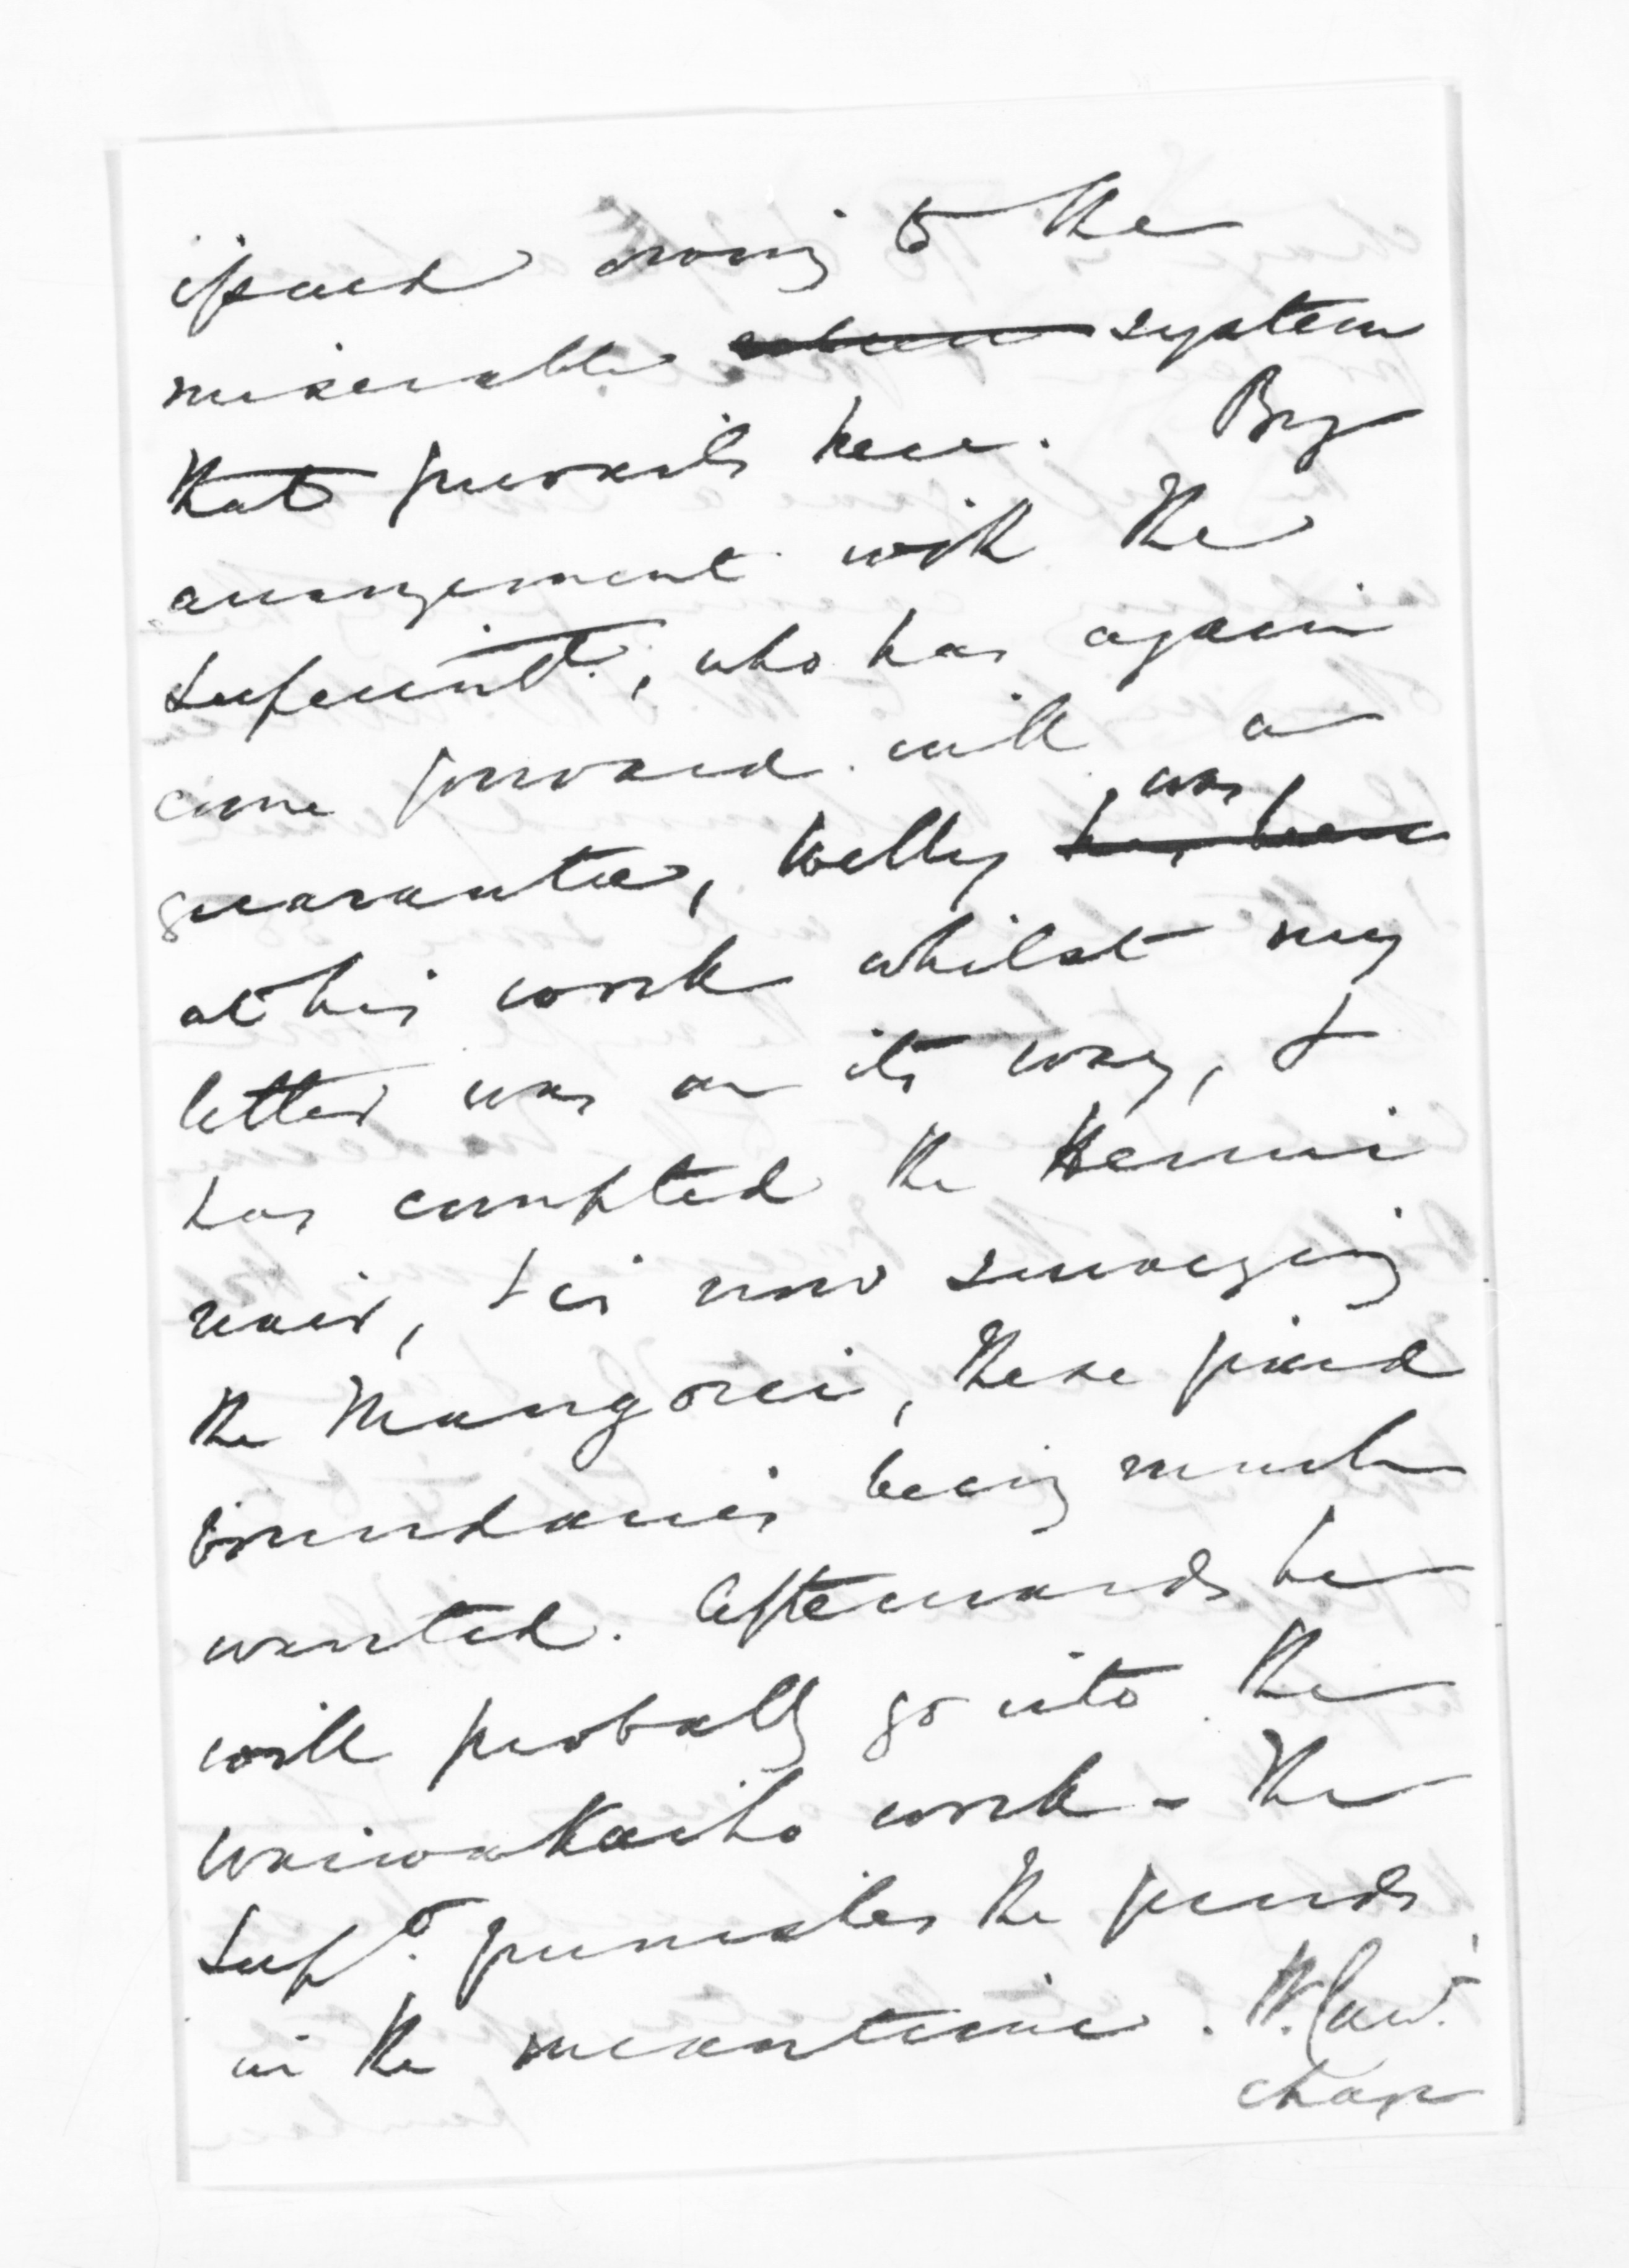 issued owing to the
miserable system
that prevails here. By
arrangement with the
Superintt., who has again
come forward with a
guarantee, Welby was
at his work whilst my
letter was on its way, &
has compted the Henui
river, & is now surveying
the Mangorei, these
boundaries being much
wanted. Afterwards he
will probably go into the
Waiwakaiho work - the
Supt. promises the funds
in the meantime.